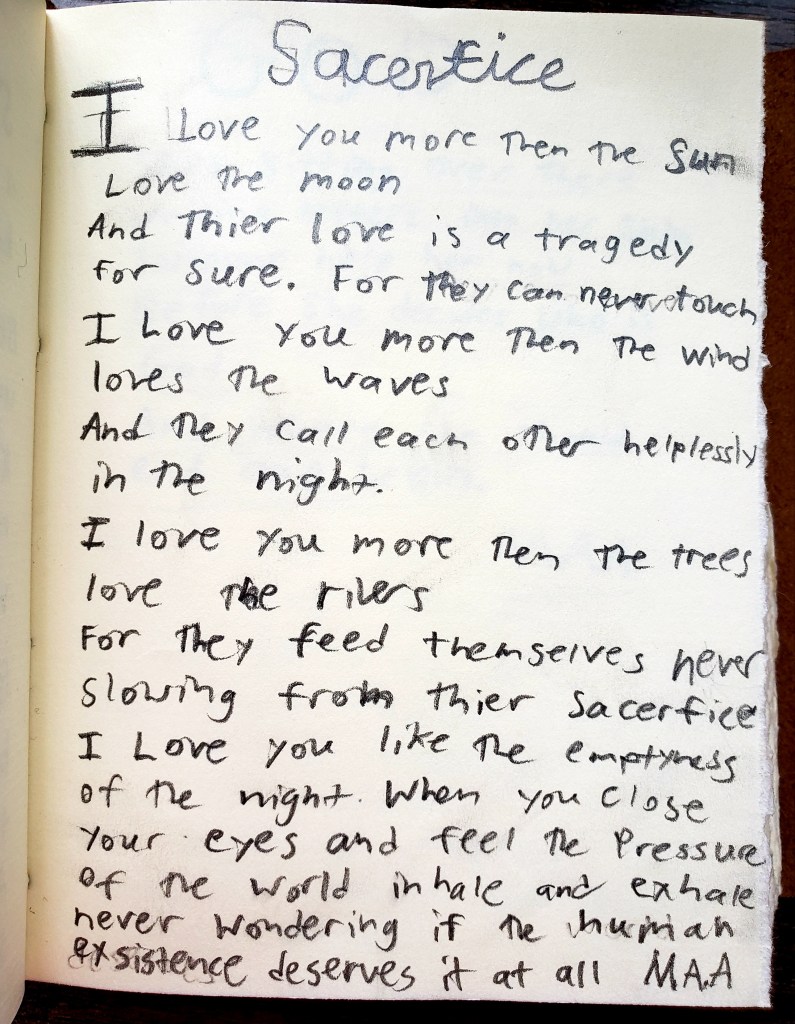 Sacerfice
I Love you more then the Sun
Love the moon
And Thier love is a tragedy
For sure. For they can never touch
I Love you more then the wind
loves the waves
And they call each other helplessly
in the night.
I love you more then the trees
love the rivers
For they feed themselves never
slowing from thier sacerfice
I Love you like the emptyness
of the night. When you close
your eyes and feel the Pressure
of the world inhale and exhale
never wondering if the human
exsistence deserves it at all M.A.A